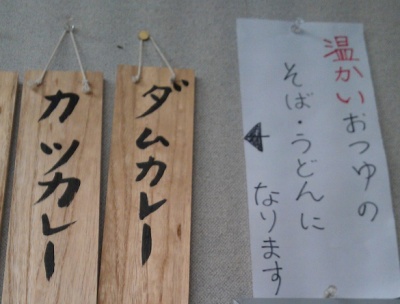 温かいおつゆの
そば・うどんに
なります
ダムカレー
カツカレー